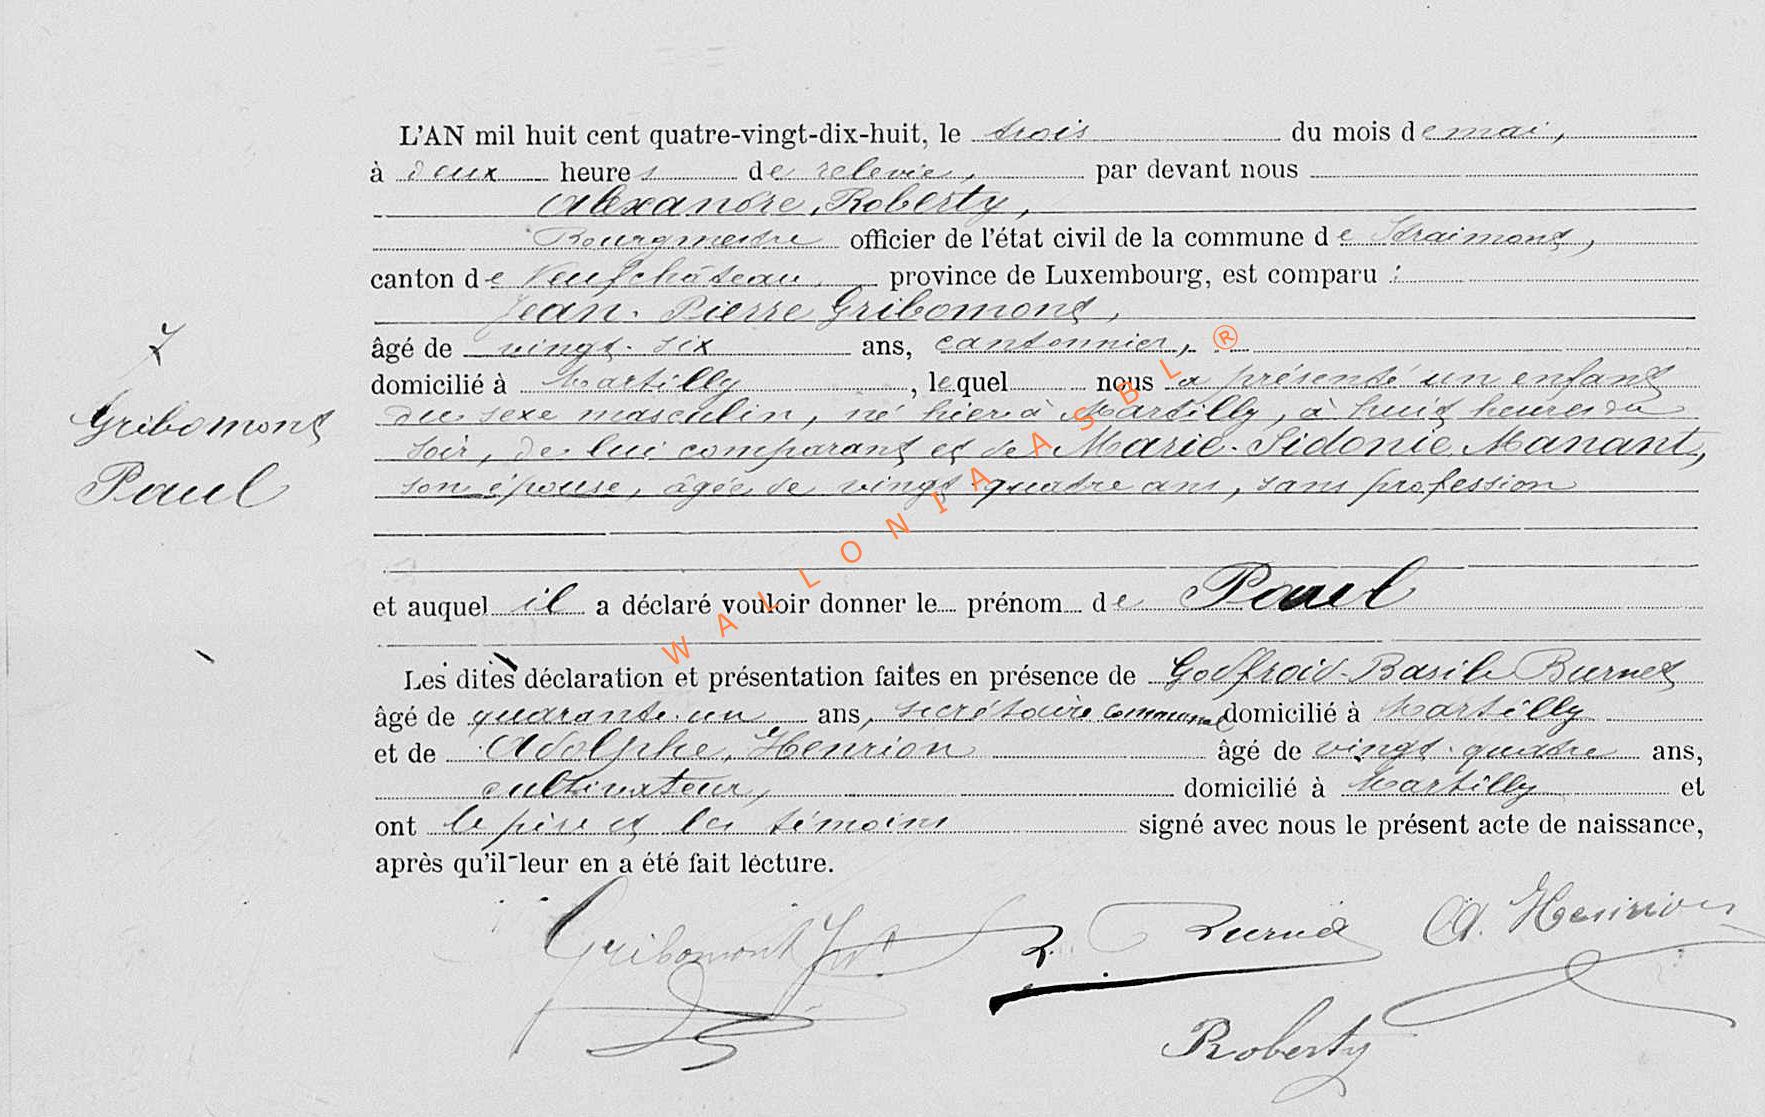 L'AN mil huit cent quatre-vingt-dix-huit, le trois du mois de mai,
à deux heures de relevée, par devant nous
Alexandre, Roberty,
Bourgmestre officier de l'état civil de la commune de Straimont,
canton de Neufchâteau, province de Luxembourg, est comparu :
Jean-Pierre Gribomont,
âgé de vingt-six ans, cantonnier,
domicilié à Martilly, lequel nous a présenté un enfant
du sexe masculin, né hier à Martilly, à huit heures du
soir, de lui comparant et de Marie-Sidonie Manant,
son épouse, âgée de vingt-quatre ans, sans profession
7
Gribomont
Paul
et auquel il a déclaré vouloir donner le prénom de Paul
Les dites déclaration et présentation faites en présence de Godfroid-Basile Burnet
âgé de quarante-un ans, secrétaire communal domicilié à Martilly
et de Adolphe, Henrion âgé de vingt-quatre ans,
cultivateur, domicilié à Martilly et
ont le père et les témoins signé avec nous le présent acte de naissance,
après qu'il leur en a été fait lecture.
Gribomont A. Henrion
Roberty
WALLONIA ASBL ®